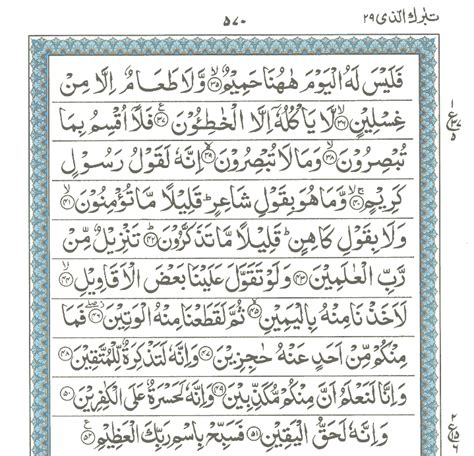 تبرك الذى ٢٩
٥٧٠
فَلَيْسَ لَهُ الْيَوْمَ هٰهُنَا حَمِيْمٌ ۙ‏﴿۳۵﴾ وَّلَا طَعَامٌ اِلَّا مِنْ
غِسْلِيْنٍ ۙ‏﴿۳۶﴾ لَّا يَاْكُلُهٗۤ اِلَّا الْخٰطِـُٔوْنَ ﴿۳۷﴾ ع فَلَاۤ اُقْسِمُ بِمَا
تُبْصِرُوْنَ ۙ‏﴿۳۸﴾ وَمَا لَا تُبْصِرُوْنَ ۙ‏﴿۳۹﴾ اِنَّهٗ لَقَوْلُ رَسُوْلٍ
كَرِيْمٍ ۙۚ‏﴿۴۰﴾ وَّمَا هُوَ بِقَوْلِ شَاعِرٍ ؕ قَلِيْلًا مَّا تُؤْمِنُوْنَ ۙ‏﴿۴۱﴾
وَلَا بِقَوْلِ كَاهِنٍ ؕ قَلِيْلًا مَّا تَذَكَّرُوْنَ ؕ‏﴿۴۲﴾ تَنْزِيْلٌ مِّنْ
رَّبِّ الْعٰلَمِيْنَ ﴿۴۳﴾ وَلَوْ تَقَوَّلَ عَلَيْنَا بَعْضَ الْاَقَاوِيْلِ ۙ‏﴿۴۴﴾
لَاَخَذْنَا مِنْهُ بِالْيَمِيْنِ ۙ‏﴿۴۵﴾ ثُمَّ لَقَطَعْنَا مِنْهُ الْوَتِيْنَ ﴿۴۶﴾ فَمَا
مِنْكُمْ مِّنْ اَحَدٍ عَنْهُ حٰجِزِيْنَ ﴿۴۷﴾ وَاِنَّهٗ لَتَذْكِرَةٌ لِّلْمُتَّقِيْنَ ﴿۴۸﴾
وَاِنَّا لَنَعْلَمُ اَنَّ مِنْكُمْ مُّكَذِّبِيْنَ ﴿۴۹﴾ وَاِنَّهٗ لَحَسْرَةٌ عَلَى الْكٰفِرِيْنَ ﴿۵۰﴾
وَاِنَّهٗ لَحَقُّ الْيَقِيْنِ ﴿۵۱﴾ فَسَبِّحْ بِاسْمِ رَبِّكَ الْعَظِيْمِ ﴿۵۲﴾ ع